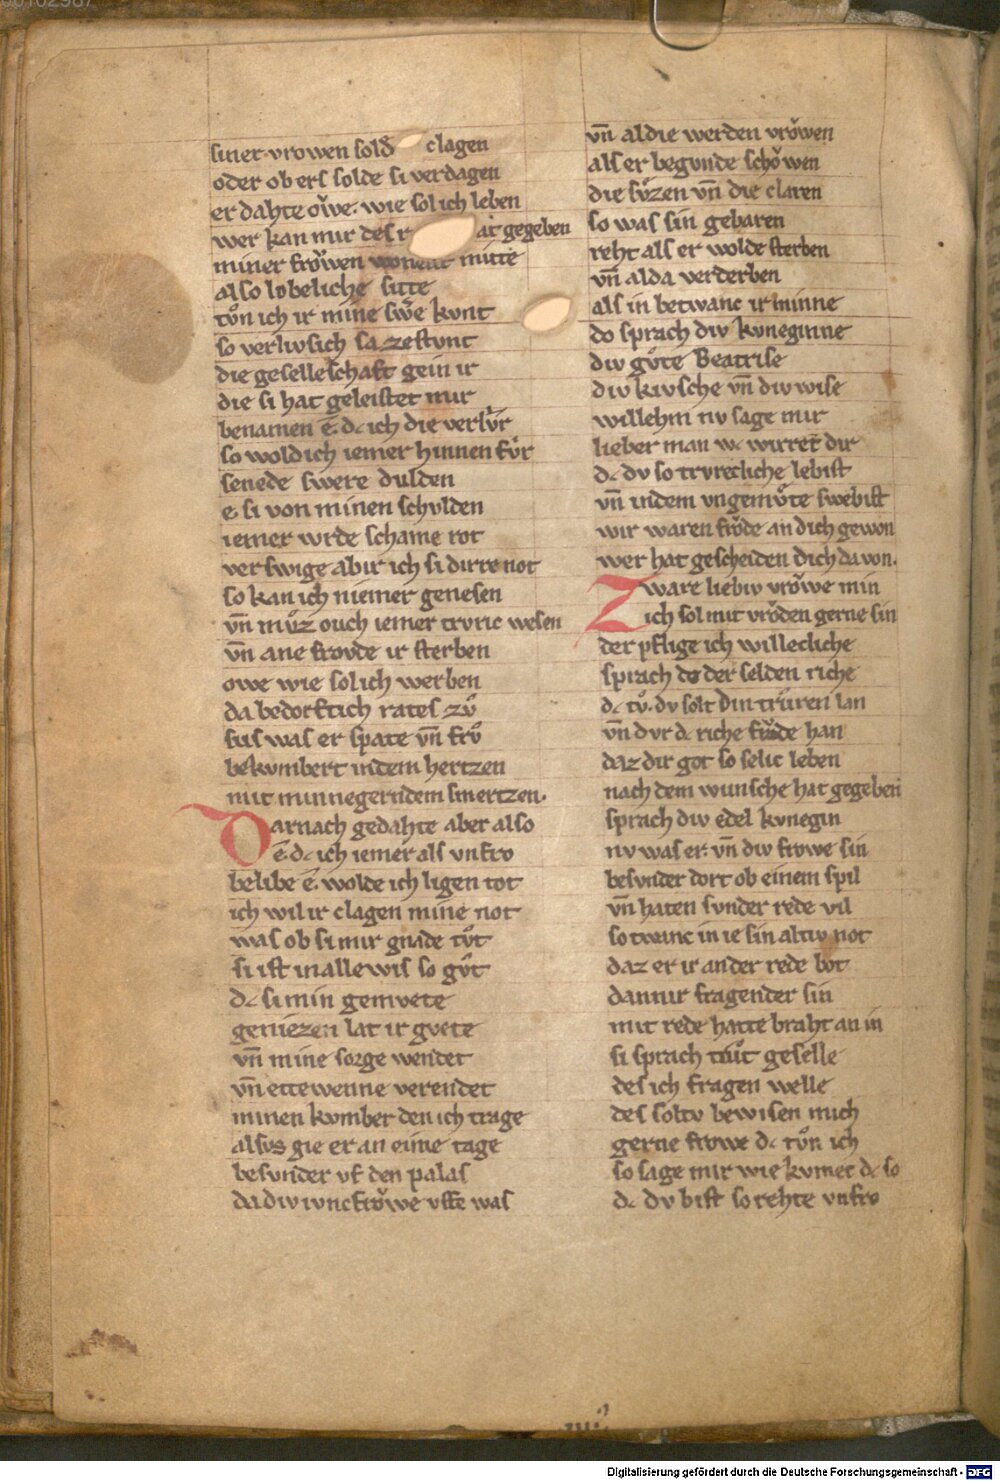 siner vrowen sold clagen
oder ob ers solde si verdagen
er dahte owͤe. wie sol ich leben
wer kan mir des r at gegeben
miner frowͤen wonent mitte
also lobeliche sitte
tuͦn ich ir mine swͤe kunt
so verliusich sa zestunt
die geselleschaft gein ir
die si hat geleistet mir
benamen ē dc ich die verluͤr
so wold ich iemer hinnen fuͤr
senede swere dulden
e si von minen schulden
iemer wrde schame rot
verswige abir ich si dirre not
so kan ich niemer genesen
vn̄ muͦz ouch iemer truric wesen
vn̄ ane frovde ir sterben
owe wie sol ich werben
da bedorft ich rates zuͦ
sus was er spate vn̄ fruͦ
bekumbert in dem hertzen
mit minnegerndem smertzen.
Darnach gedahte aber also
ē dc ich iemer als unfro
belibe ē wolde ich ligen tot
ich wil ir clagen mine not
was ob si mir gnade tuͦt
si ist in alle wis so guͦt
dc si min gemvete
geniezen lat ir gvete
vn̄ mine sorge wendet
vn̄ ettewenne verendet
minen kumber den ich trage
alsus gie er an eime tage
besunder vf den palas
da div iuncfrowͤe vffe was
vn̄ al die werden vrowͤen
als er begunde schowͤen
die suͤzen vn̄ die claren
so was sin gebaren
reht als er wolde sterben
vn̄ alda verderben
als in betwanc ir minne
do sprach div kuneginne
div guͦte Beatrise
div kivsche vn̄ div wise
willehm nv sage mir
lieber man wc wirret dir
dc dv so trvrecliche lebist
vn̄ in dem ungemuͦte swebist
wir waren froͤde an dich gewon
wer hat gescheiden dich da von.
Zware liebiv vrowͤe min
ich sol mit vroͤden gerne sin
der pflige ich willecliche
sprach do der selden riche
dc tuͦ. dv solt din truren lan
vn̄ dvr dc riche froͤde han
daz dir got so selic leben
nach dem wunsche hat gegeben
sprach div edel kvnegin
nv was er vn̄ div frowe sin
besvnder dort ob einem spil
vn̄ haten svnder rede vil
so twanc in ie sin altiv not
daz er ir ander rede bot
dannir fragender sin
mit rede hatte braht an in
si sprach truͦt geselle
des ich fragen welle
des soltv bewisen mich
gerne frowe dc tuͦn ich
so sage mir wie kvmet dc so
dc dv bist so rehte vnfro
Digitalisierung gefördert durch die Deutsche Forschungsgemeinschaft - DFG